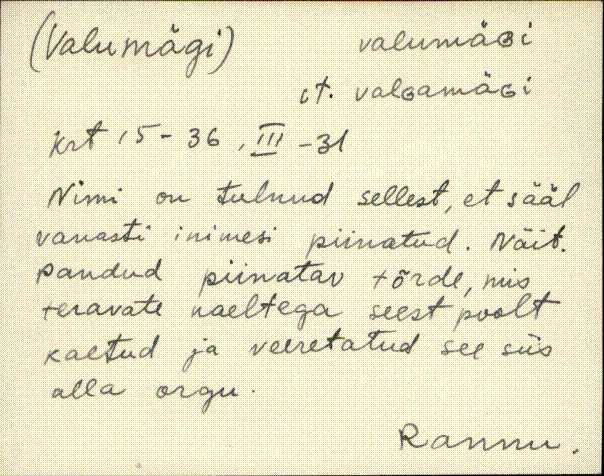 (Valumägi) valumäGi
it. valGamäGi
Krt 15-36, III-31
Nimi on tulnud sellest, et sääl
vanasti inimesi piinatud. Näit.
pandud piinatav tõrde, mis
teravate naeltega seest poolt
kaetud ja veeretatud see siis
alla orgu.
Rannu.